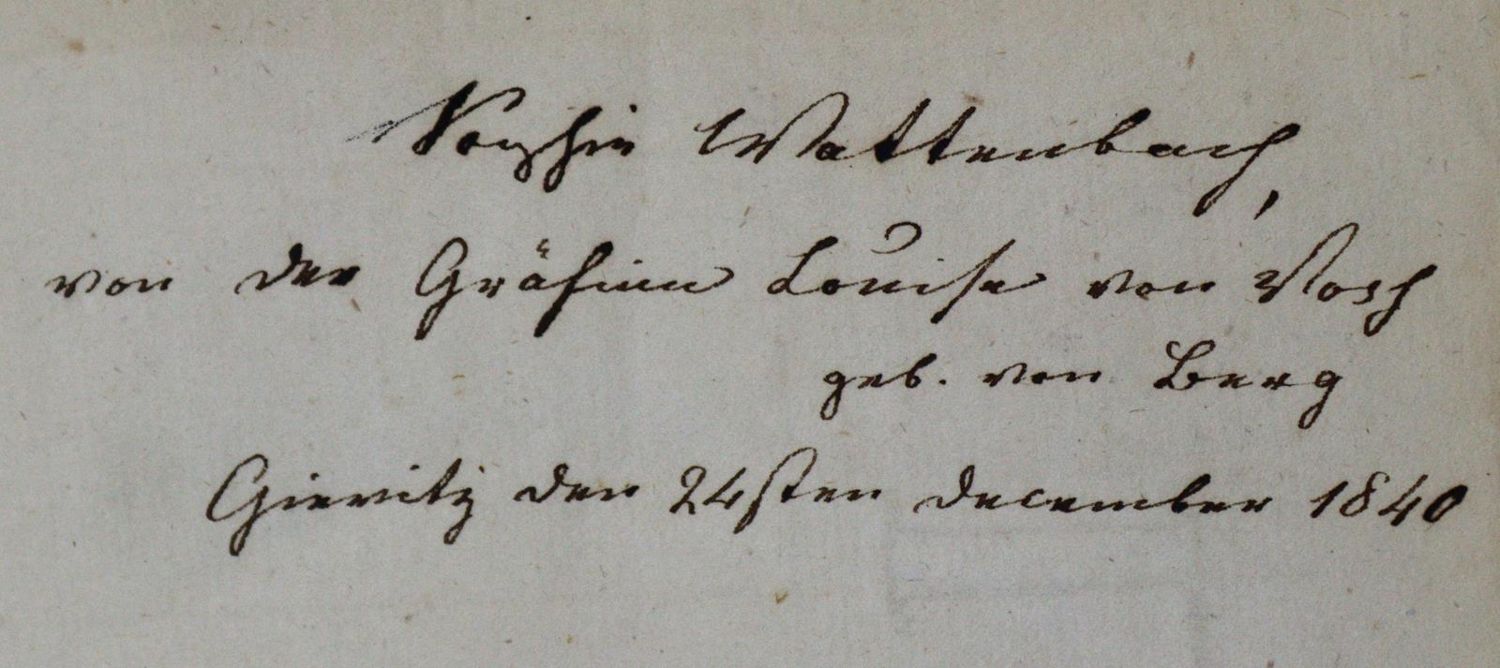 Sophie Wattenbach,
von der Gräfinn Louise von Voß
geb. von Berg
Gievitz den 24sten december 1840